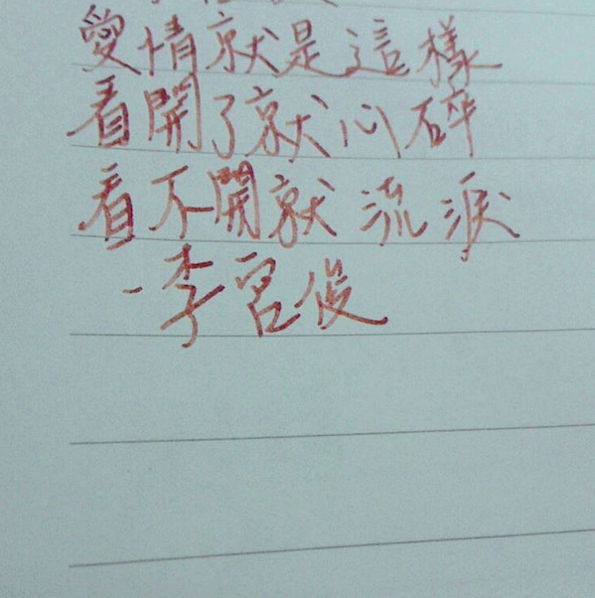 愛情就是這樣
看開了就心碎
看不開就流淚
-李宮俊